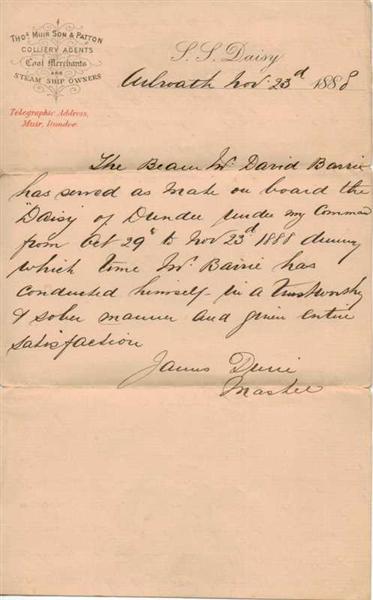 THOS MUIR SON & PATTON
COLLIERY AGENTS
Coal Merchants
AND
STEAM SHIP OWNERS
Telegraphic Address,
Muir, Dundee.
S. S. Daisy
Arbroath Nov. 23d 1888
The Bearer Mr David Barrie
has served as Mate on board the
"Daisy" of Dundee under my Command
from Oct 29th to Nov 23d 1888 during
which time Mr Barrie has
conducted himself in a trustworthy
& sober manner and given entire
satisfaction
James
Master